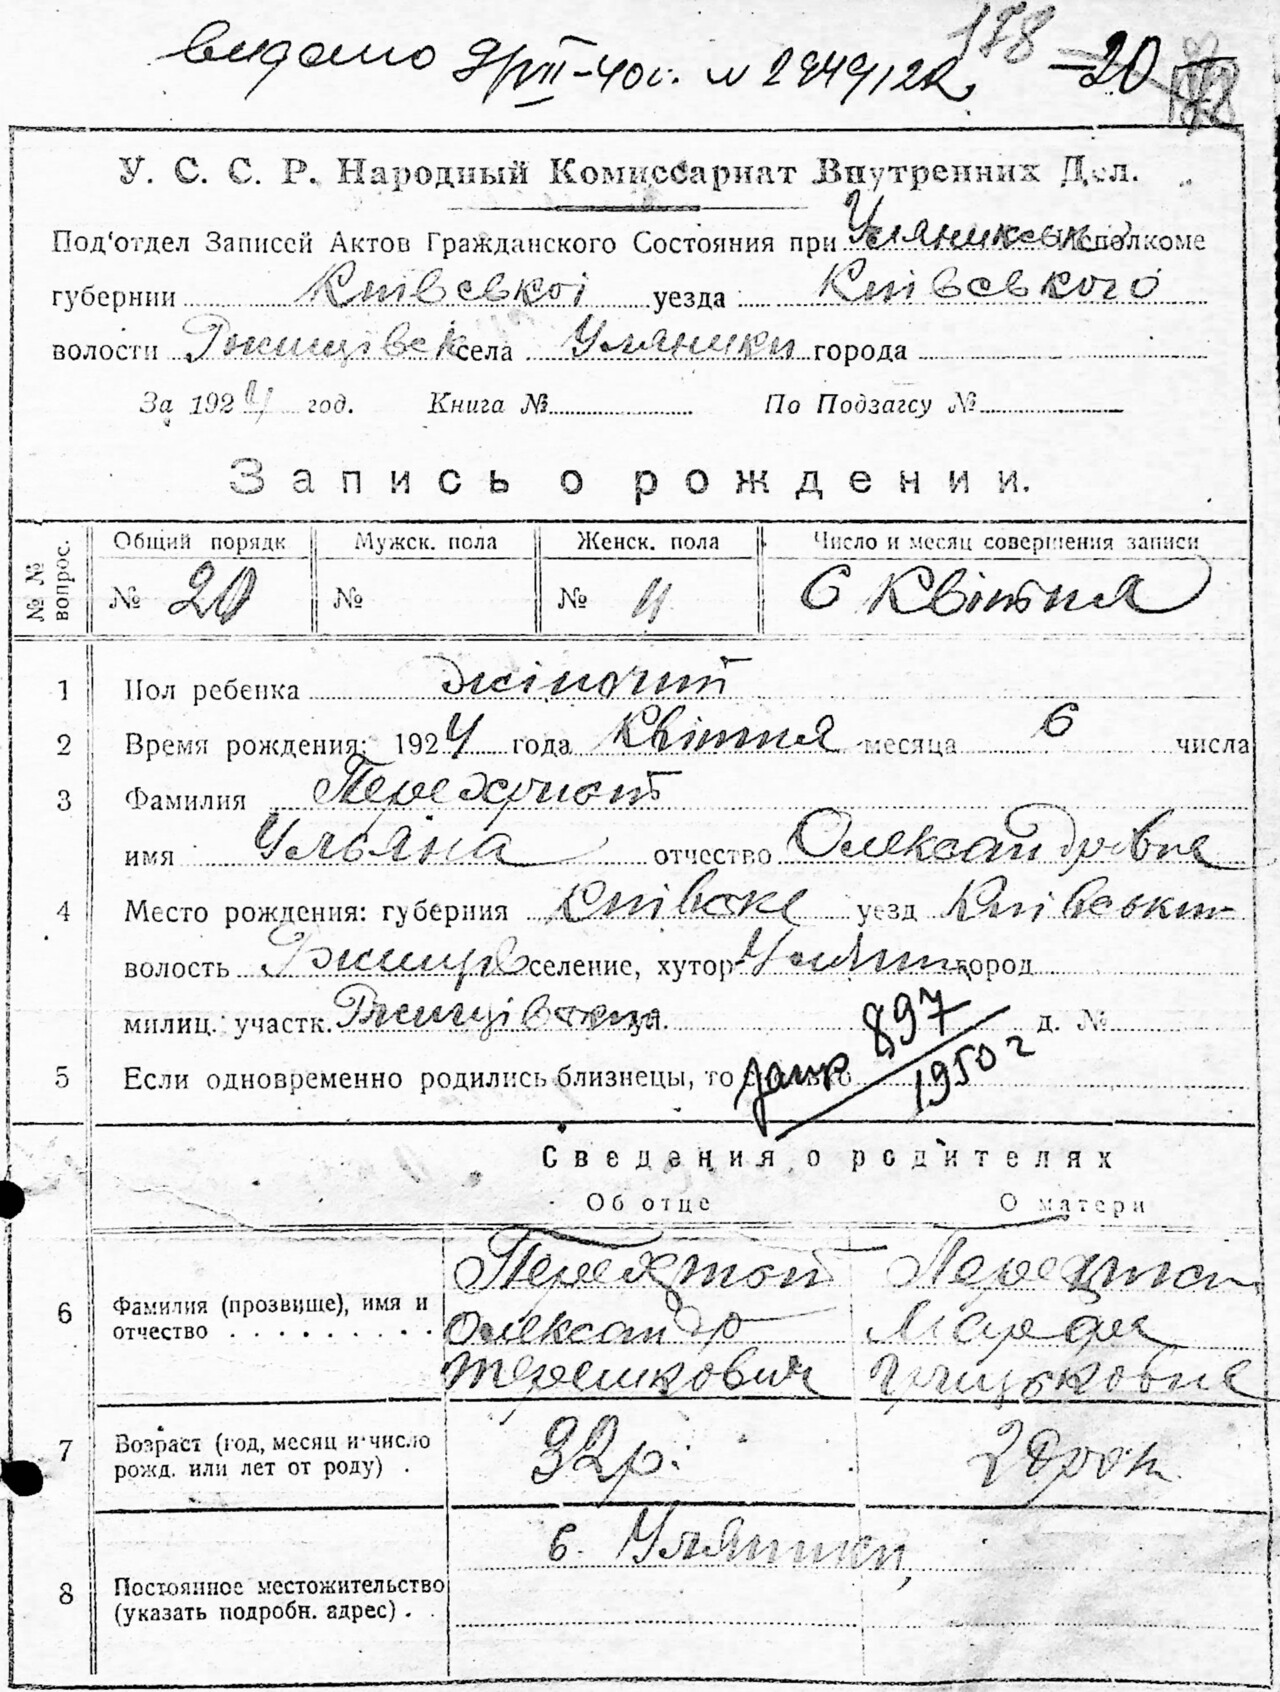 видано 9/VII-40г. № 2949/22 178 -20
У. С. С. Р. Народный Комиссариат Внутренних Дел.
Под'отдел Записей Актов Гражданского Состояния при Уляникськ. исполкоме
губернии Київської уезда Київського
волости Ржищівськ села Уляники города
За 1924 год. Книга № По Подзагсу №
Запись о рождении.
№ № вопрос. Общий порядк Мужск. пола Женск. пола Число и месяц совершения записи
№ 20 № № 11 6 Квітня
1 Пол ребенка жіночит
2 Время рождения: 1924 года Квітня месяца 6 числа
3 Фамилия Перехрист
имя Ульяна отчество Олександровна
4 Место рождения: губерния Київске уезд Київський
волость Ржищів селение, хутор Уляники город
милиц. участк. Ржищівська ул. д. №
5 Если одновременно родились близнецы, то
897
1950 г
Сведения о родителях
Об отце О матери
6 Фамилия (прозвище), имя и отчество Перехрист Перехрист
Олександр Марфа
Терешкович Грицьковна
7 Возраст (год, месяц и число рожд. или лет от роду) 32 р. 28 рот
8 Постоянное местожительство (указать подробн. адрес) с. Уляники,